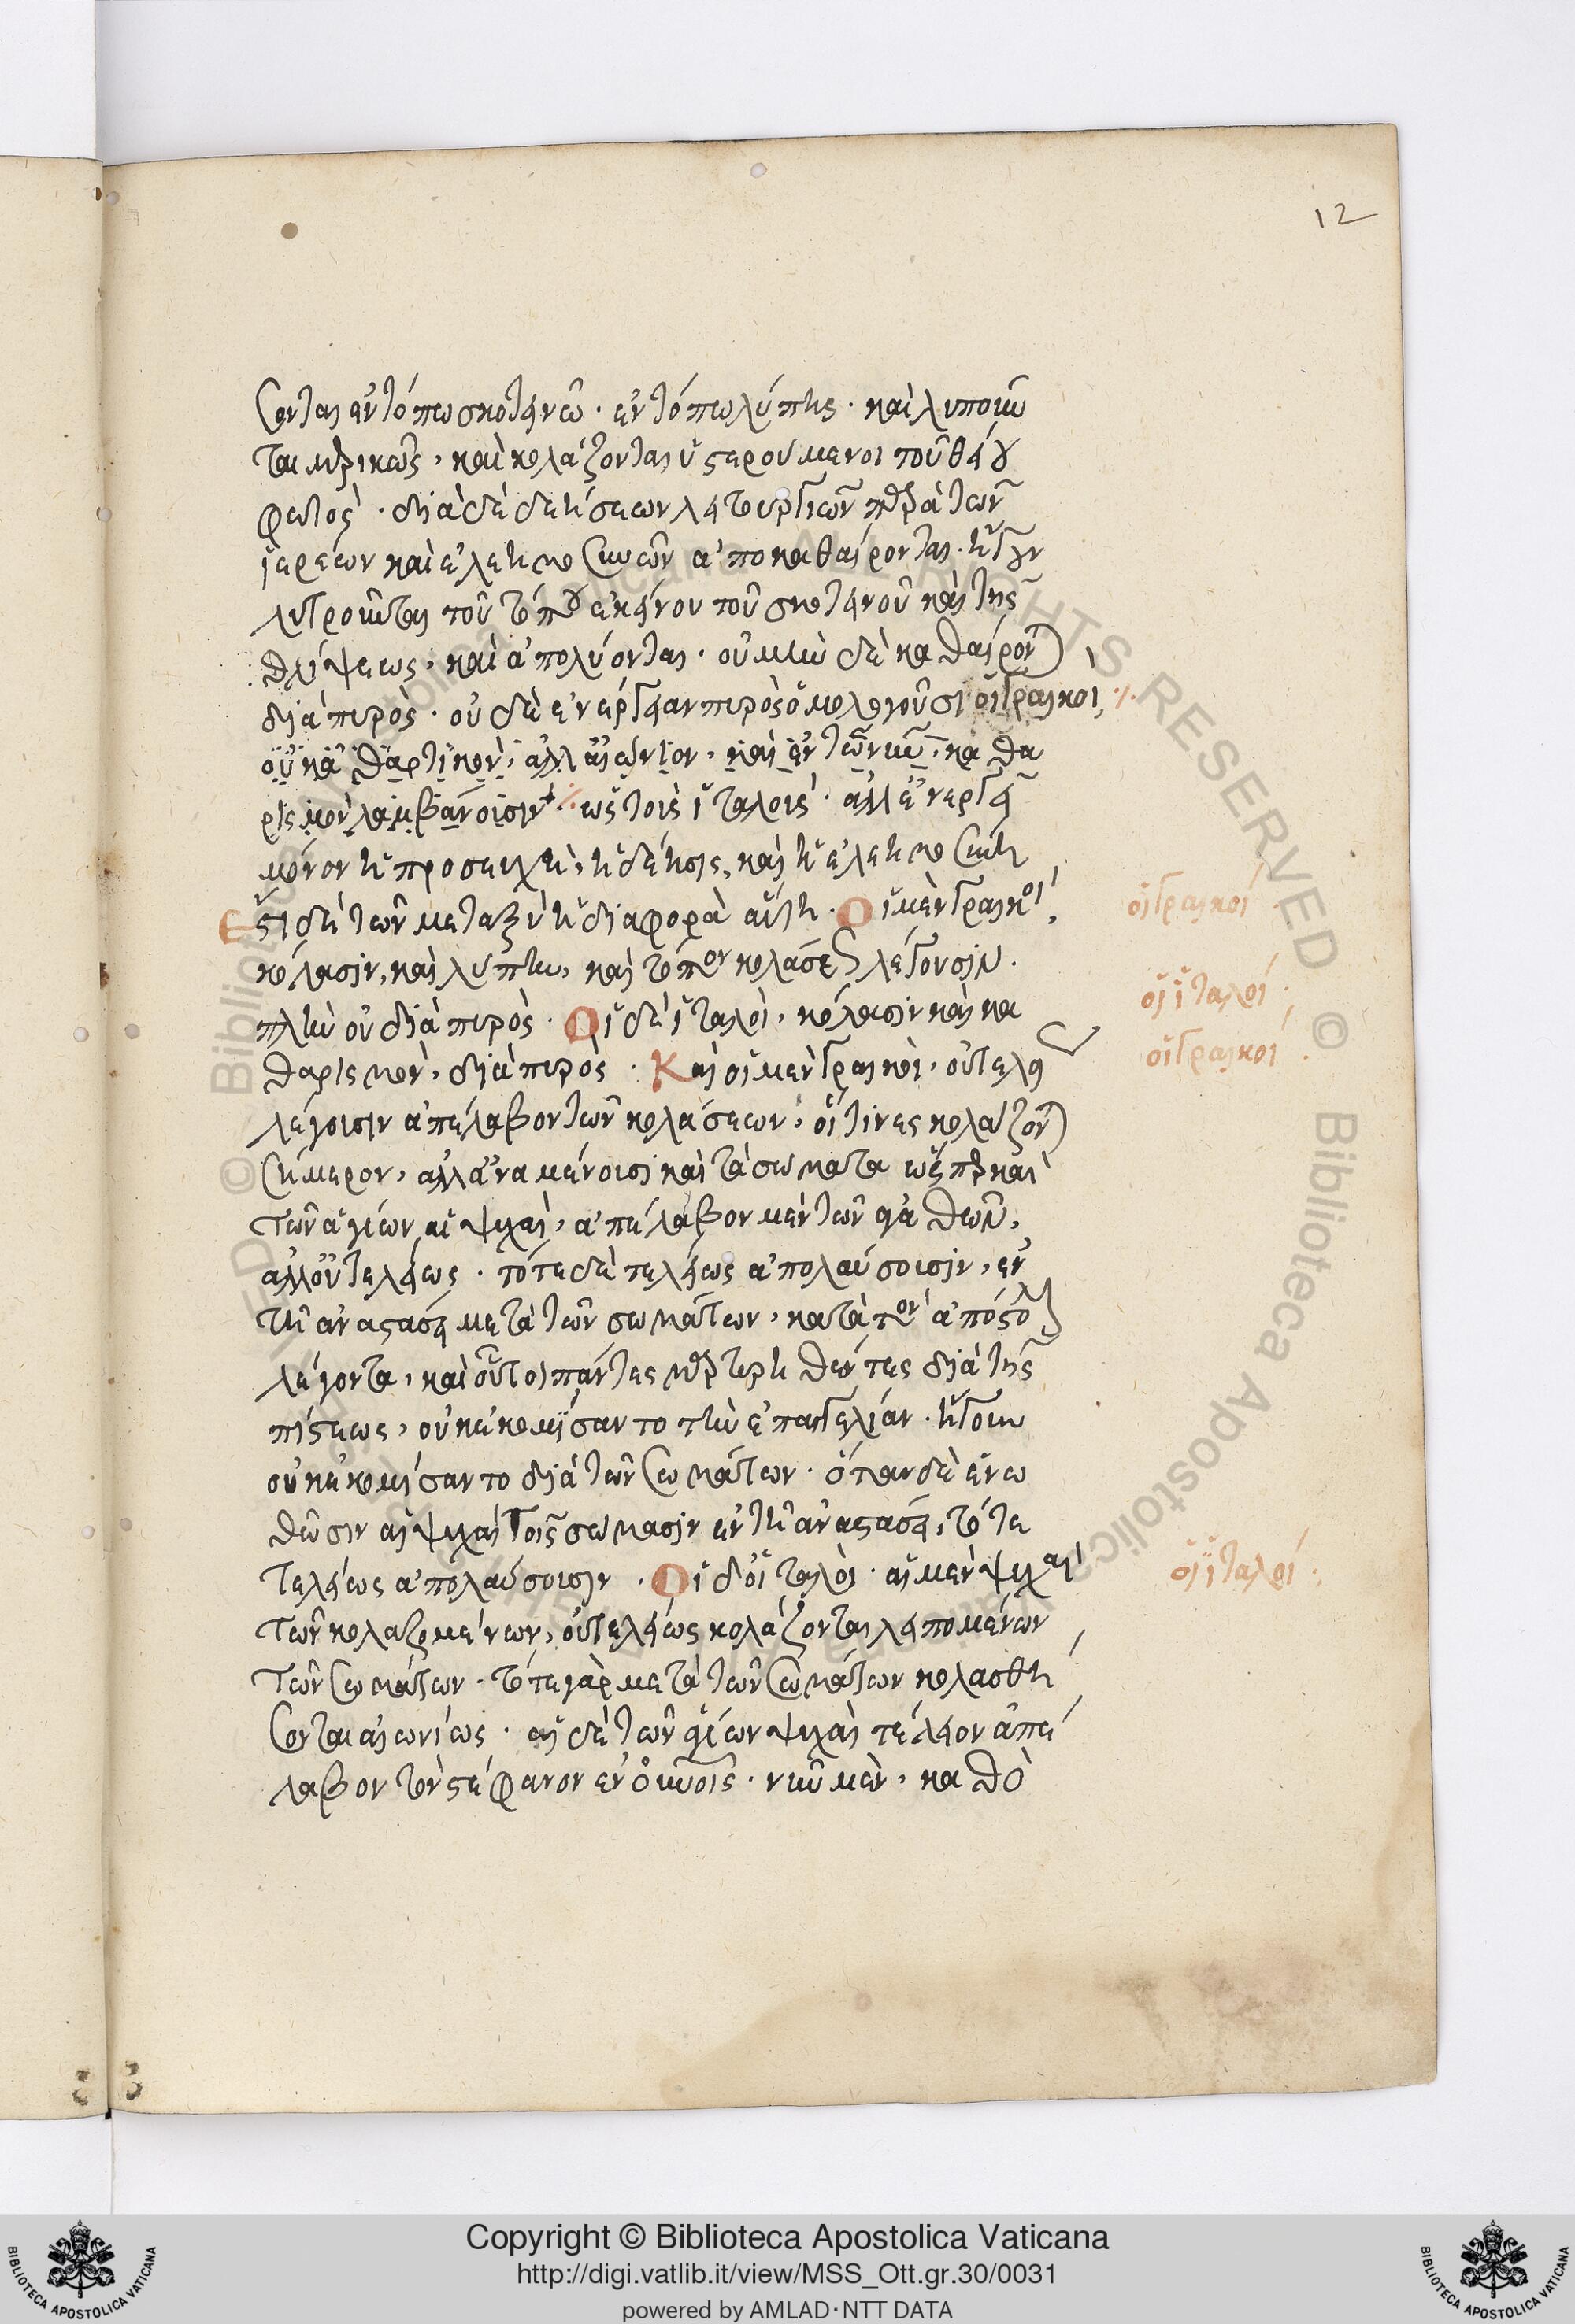 12
σονται ἐν τόπω σκοτεινῶ · ἐν τόπω λύπης · καὶ λυποῦν
ται μερικῶς, καὶ κολάζονται ὑστερούμενοι τοῦ θείου
φωτὸς · διὰ δὲ δεήσεων λειτουργιῶν παρὰ τῶν
ἱερέων καὶ ἐλεημοσυνῶν ἀποκαθαίρονται · ἤγουν
λυτροῦνται τοῦ τόπου ἐκείνου τοῦ σκοτεινοῦ καὶ τῆς
θλίψεως, καὶ ἀπολύονται · οὐ μὴν δὲ καθαίρονται
διὰ πυρὸς · οὐδὲ ἐνέργειαν πυρὸς ὁμολογοῦσι οἱ γραικοὶ,
οὐ καθαρτικὸν, ἀλλ' αἰώνιον, καὶ ἐν τῶ νῦν, καθα
ρισμὸν λαμβάνουσιν ὡς τοῖς ἰταλοῖς · ἀλλ' ἐνεργεῖ
μόνον ἡ προσευχὴ, ἡ δέησις, καὶ ἡ ἐλεημοσύνη
Ἔστι δὲ τῶν μεταξὺ ἡ διαφορὰ αὕτη · Οἱ μὲν γραικοὶ,
κόλασιν, καὶ λύπην, καὶ τόπον κολάσεως λέγουσιν ·
πλὴν οὐ διὰ πυρὸς · Οἱ δὲ ἰταλοὶ, κόλασιν καὶ κα
θαρισμὸν, διὰ πυρὸς · Καὶ οἱ μὲν γραικοὶ, οὐ τελείως
λέγουσιν ἀπέλαβον τῶν κολάσεων, οἵτινες κολάζονται
σήμερον, ἀλλ' ἀναμένουσι καὶ τὰ σώματα ὥσπερ καὶ
τῶν ἁγίων αἱ ψυχαὶ, ἀπέλαβον μὲν τῶν ἀγαθῶν,
ἀλλ' οὐ τελείως · τότε δὲ τελείως ἀπολαύσουσιν, ἐν
τῆ ἀναστάσει μετὰ τῶν σωμάτων, κατὰ τὸν ἀπόστολον
λέγοντα, καὶ οὗτοι πάντες μαρτυρηθέντες διὰ τῆς
πίστεως, οὐκ ἐκομίσαντο τὴν ἐπαγγελίαν · ἤγουν
οὐκ ἐκομίσαντο διὰ τῶν σωμάτων · ὅταν δὲ ἑνω
θῶσιν αἱ ψυχαὶ τοῖς σώμασιν ἐν τῆ ἀναστάσει, τότε
τελείως ἀπολαύσουσιν · Οἱ δ' οἱ ταλοὶ · αἱ μὲν ψυχαὶ
τῶν κολαζομένων, οὐ τελείως κολάζονται λειπομένων
τῶν σωμάτων · τότε γὰρ μετὰ τῶν σωμάτων κολασθή
σονται αἰωνίως · αἱ δὲ τῶν ἁγίων ψυχαὶ τέλειον ἀπέ
λαβον τὸν στέφανον ἐν οὐνοῖς · νῦν μὲν, καθὸ
οἱ γραικοί
οἱ ἰταλοί
οἱ γραικοί
οἱ ἰταλοί
Copyright © Biblioteca Apostolica Vaticana
http://digi.vatlib.it/view/MSS_Ott.gr.30/0031
powered by AMLAD·NTT DATA
BIBLIOTECA APOSTOLICA VATICANA
BIBLIOTECA APOSTOLICA VATICANA